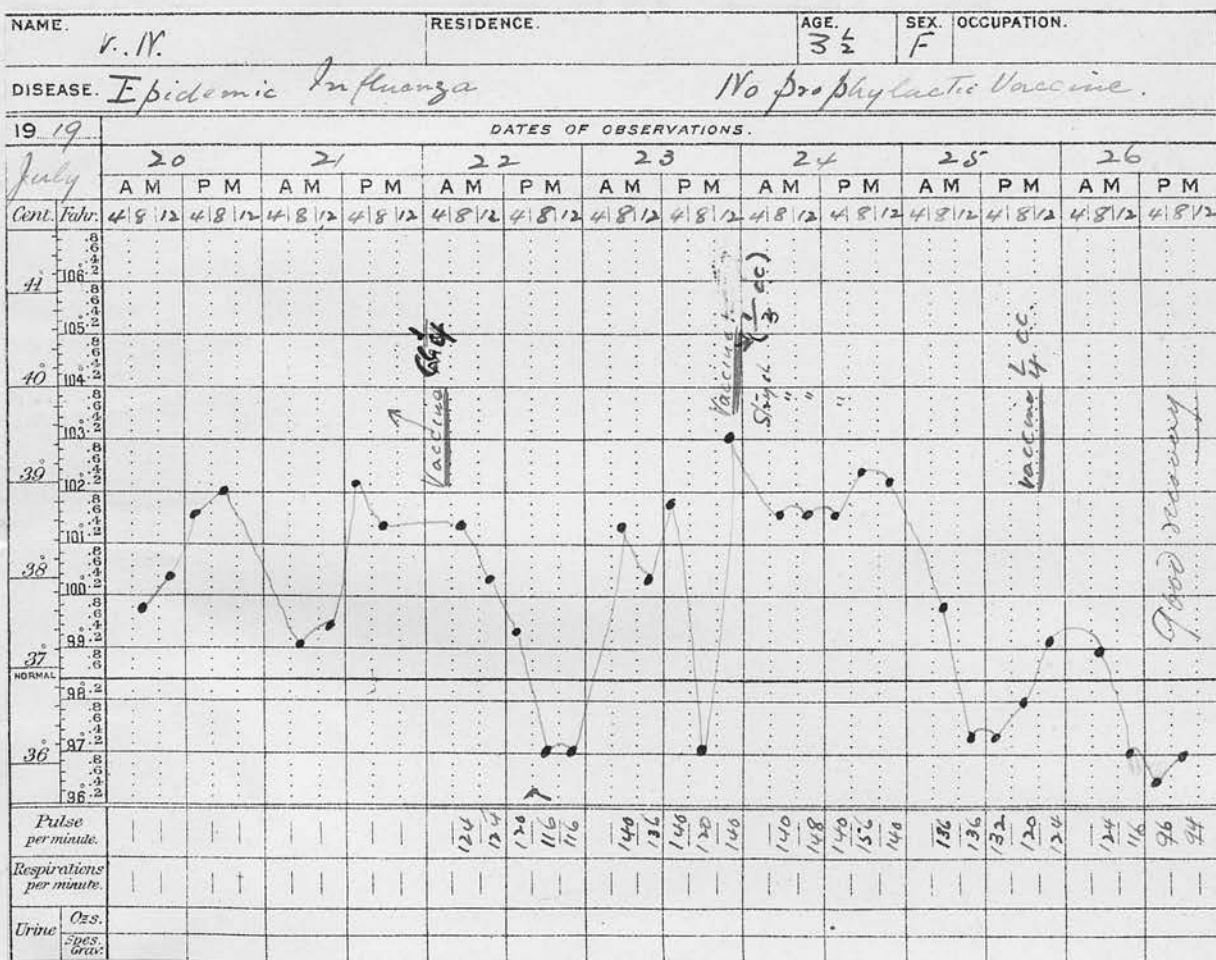 NAME. RESIDENCE. AGE. SEX. OCCUPATION.
V. N. 3 1/2 F
DISEASE. Epidemic Influenza No prophylactic Vaccine.
19 19 DATES OF OBSERVATIONS.
July 20 21 22 23 24 25 26
A M P M A M P M A M P M A M P M A M P M A M P M A M P M
Cent. Fahr. 4 8 12 4 8 12 4 8 12 4 8 12 4 8 12 4 8 12 4 8 12 4 8 12 4 8 12 4 8 12 4 8 12 4 8 12 4 8 12 4 8 12
41° 106°
105°
40° 104°
103°
39° 102°
101°
38° 100°
99°
37°
NORMAL
98°
36° 97°
96°
Vaccine
Vaccine
Strych (1/3 cc)
" "
"
Vaccine 1/4 cc.
Good recovery
Pulse per minute. 124 124 120 116 116 140 136 140 120 140 140 148 140 156 140 136 136 132 120 124 124 116 96 94
Respirations per minute.
Urine Ozs.
Spes. Grav.